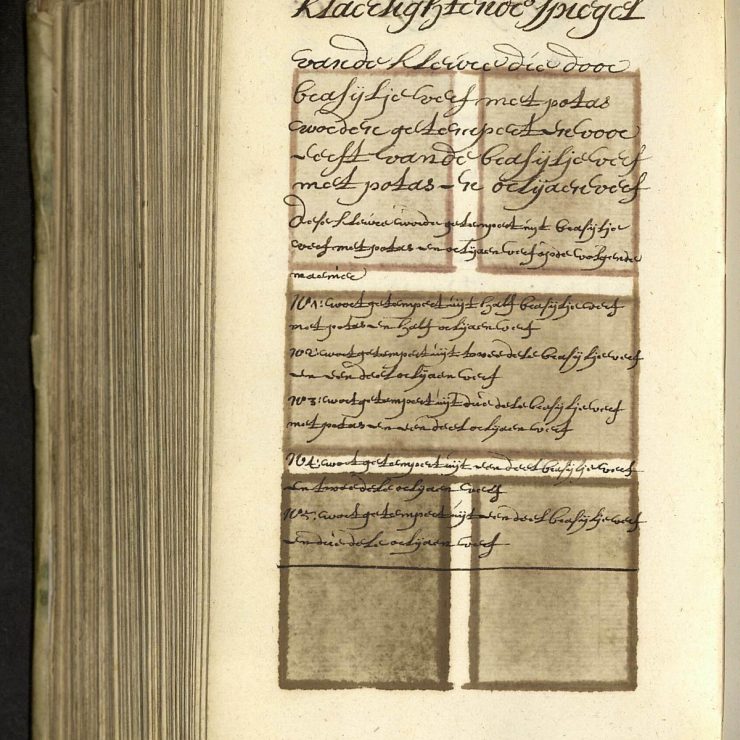 klaerlightende spiegel
van de kleure die door
brasijlje verf met potas
worden getempert en voor
eerst van de brasijlje verf
met potas en orlijaen verf
dese kleure worde getempert uijt brasijlje
verf met potas en orlijaen verf op de volgende
manier
N⁰1: wort getempert uijt half brasijlje verf
met potas en half orlijaen verf
N⁰2: wort getempert uijt twee dele brasijlje verf
en een deel orlijaen verf
N⁰3: wort getempert uijt drie dele brasijlje verf
met potas en een deel orlijaen verf
N⁰4: wort getempert uijt een deel brasijlje verf
en twee dele orlijaen verf
N⁰5: wort getempert uijt een deel brasijlje verf
en drie dele orlijaen verf